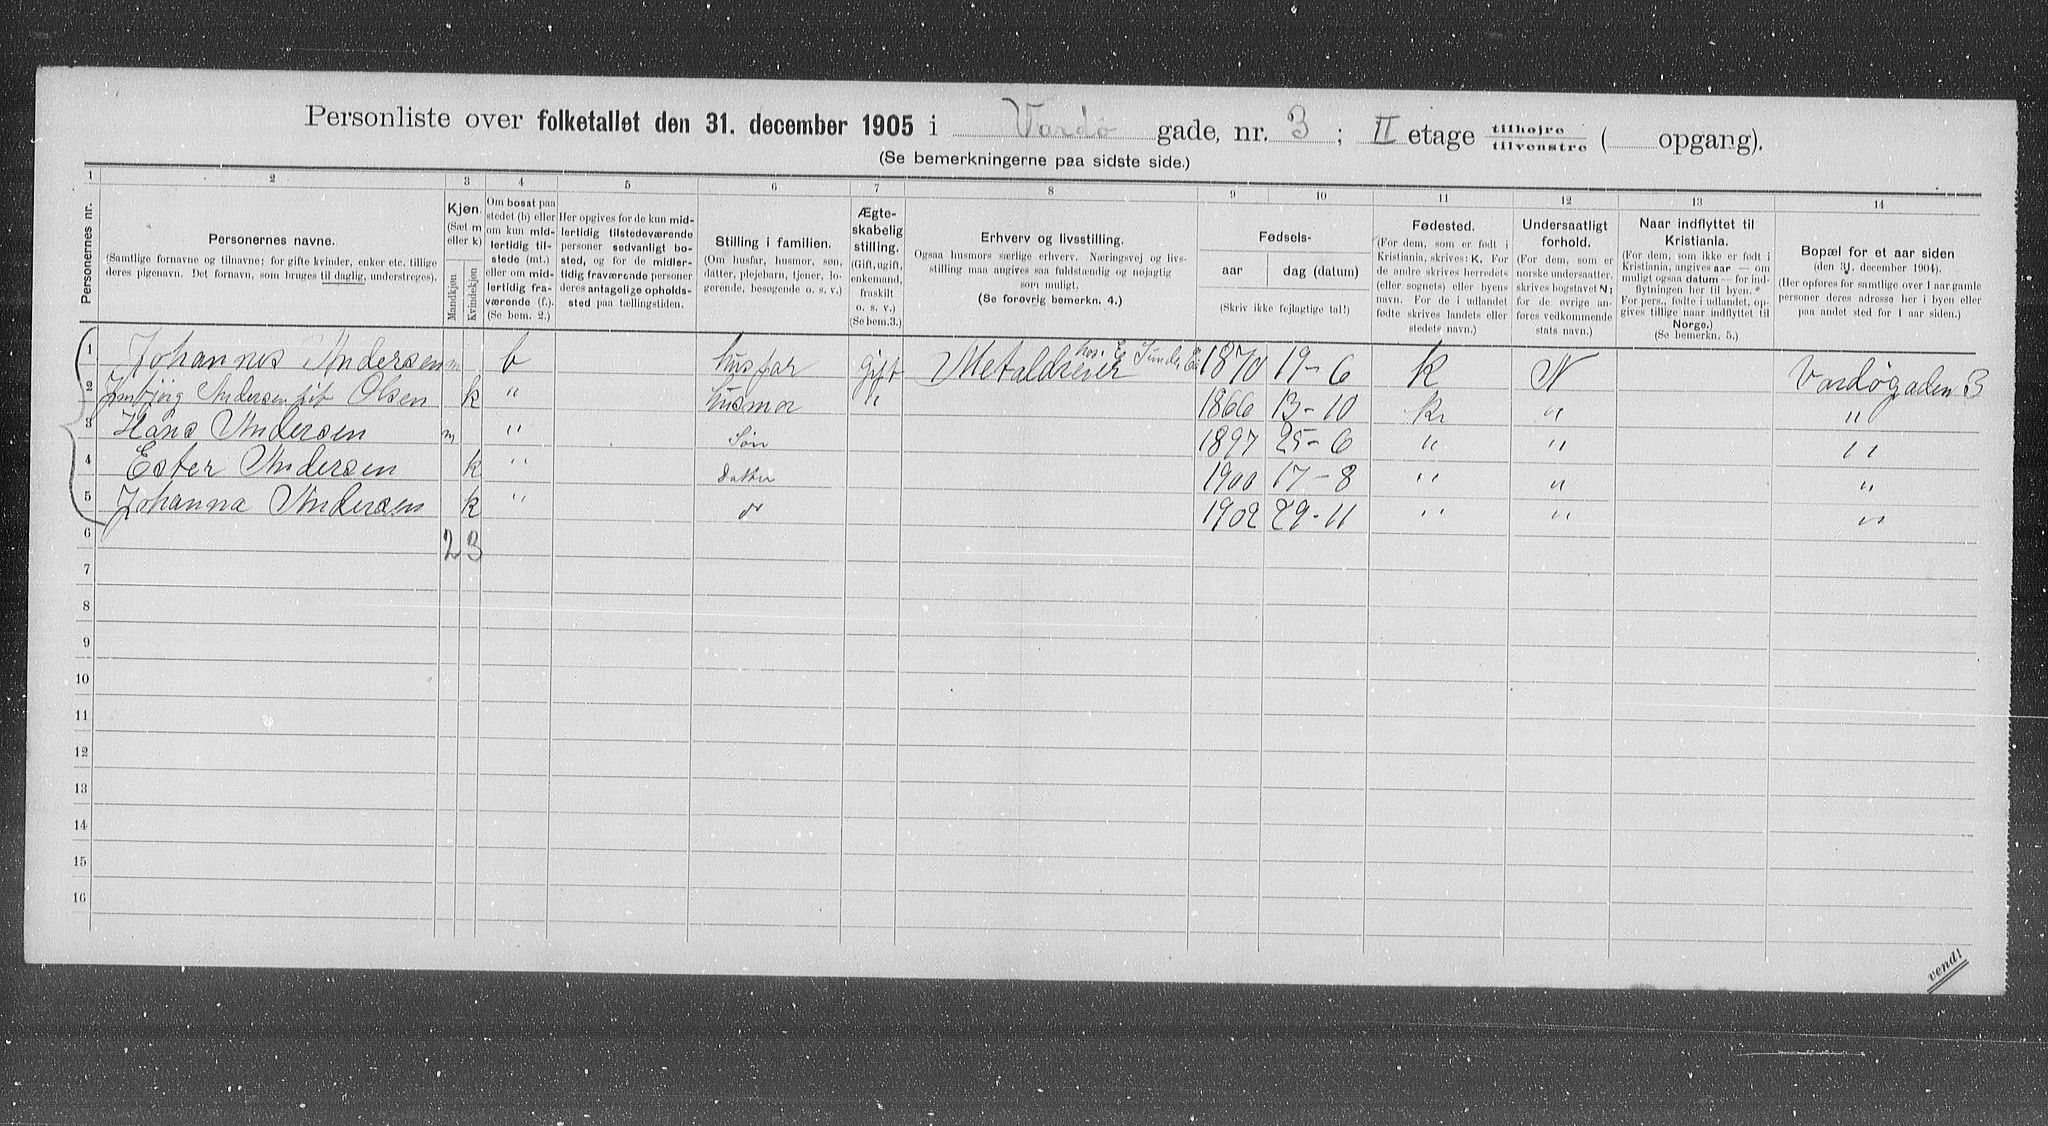 Personliste over folketallet den 31. december 1905 i Vardø gade, nr. 3; II etage tilhøjre tilvenstre ( opgang).
(Se bemerkningerne paa sidste side.)
1 2 3 4 5 6 7 8 9 10 11 12 13 14
Personernes nr.
Personernes navne.
(Samtlige fornavne og tilnavne; for gifte kvinder, enker etc. tillige
deres pigenavn. Det fornavn, som bruges til daglig, understreges).
Kjøn.
(Sæt m
eller k)
Mandkjøn
Kvindekjøn
Om bosat paa
stedet (b) eller
om kun mid-
lertidig til-
stede (mt.)
eller om mid-
lertidig fra-
værende (f.).
(Se bem. 2.)
Her opgives for de kun mid-
lertidig tilstedeværende
personer sedvanligt bo-
sted, og for de midler-
tidig fraværende personer
deres antagelige opholds-
sted paa tællingstiden.
Stilling i familien.
(Om husfar, husmor, søn,
datter, plejebarn, tjener, lo-
gerende, besøgende o. s. v.)
Ægte-
skabelig
stilling.
(Gift, ugift,
enkemand,
fraskilt
o. s. v.)
(Se bem.3.)
Erhverv og livsstilling.
Ogsaa husmors særlige erhverv. Næringsvej og livs-
stilling maa angives saa fuldstændig og nøjagtig
som muligt.
(Se forøvrig bemerkn. 4.)
Fødsels-
aar
dag (datum)
(Skriv ikke fejlagtige tal!)
Fødested.
(For dem, som er født i
Kristiania, skrives: K. For
de andre skrives herredets
(eller sognets) eller byens
navn. For de i udlandet
fødte skrives landets eller
stedets navn.)
Undersaatligt
forhold.
(For dem, som er
norske undersaatter,
skrives bogstavet N;
for de øvrige an-
føres vedkommende
stats navn.)
Naar indflyttet til
Kristiania.
(For dem, som ikke er født i
Kristiania, angives aar — om
muligt ogsaa datum — for ind-
flytningen her til byen.
For pers., fødte i udlandet, op-
gives tillige naar indflyttet til
Norge.)
(Se bemerkn. 5.)
Bopæl for et aar siden
(den 31. december 1904).
(Her opføres for samtlige over 1 aar gamle
personer deres adresse her i byen eller
paa andet sted for 1 aar siden.)
1 Johannes Andersen m b husfar Gift Metaldreier hos. E 1870 19-6 K N Vardøgaden 3
2 Andersen Olsen k " Husmor " 1866 13-10 Kr " "
3 Hans Andersen m " Søn 1897 25-6 " " "
4 Ester Andersen k " Datter 1900 17-8 " " "
5 Johanna Andersen k " 1902 29-11 " " "
6 2 3
7
8
9
10
11
12
13
14
15
16
vend!